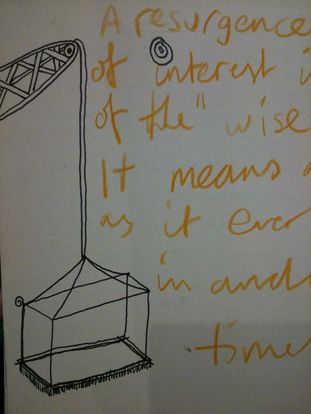 A resurgence
of interest i
of the " wise
It means a
as it ever
in and
time